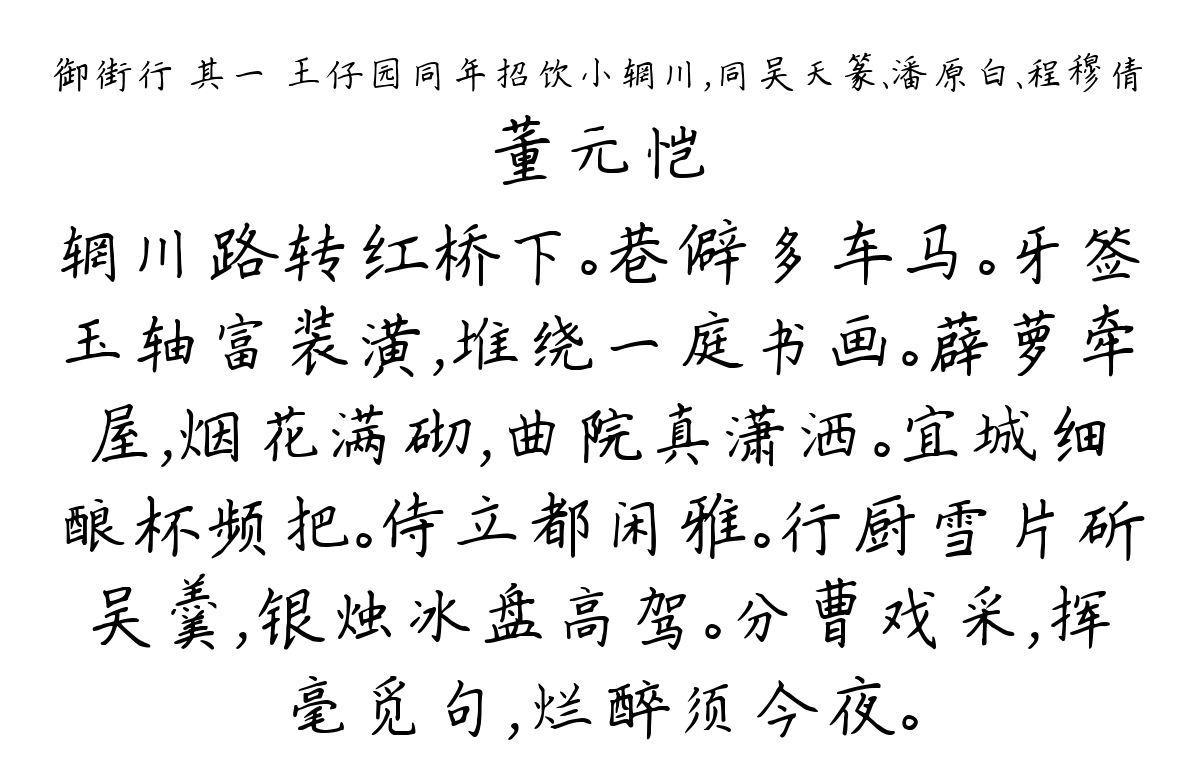 御街行 其一 王仔园同年招饮小辋川,同吴天篆、潘原白、程穆倩
董元恺
辋川路转红桥下。巷僻多车马。牙签
玉轴富装潢,堆绕一庭书画。薜萝牵
屋,烟花满砌,曲院真潇洒。宜城细
酿杯频把。侍立都闲雅。行厨雪片斫
吴羹,银烛冰盘高驾。分曹戏采,挥
毫觅句,烂醉须今夜。